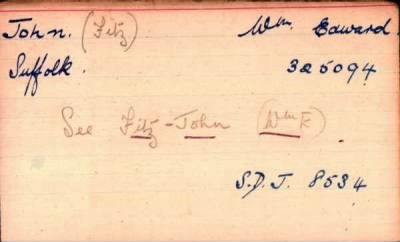 John. (Fitz) Wm. Edward.
Suffolk. 325094
See Fitz-John (Wm E)
S.D.J. 8534